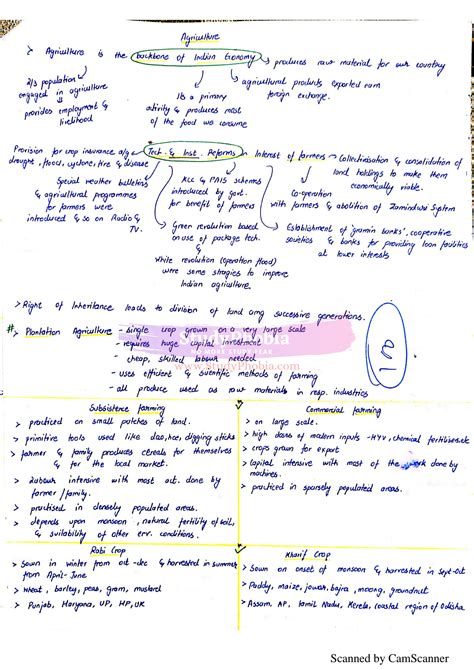 Agriculture
> Agriculture is the backbone of Indian Economy → produces raw material for our country
2/3 population engaged in agriculture
provides employment & livelihood
Its a primary activity & produces most of the food we consume
agricultural products exported earn foreign exchange.
Provision for crop insurance a/g drought, flood, cyclone, fire & disease
Tech. & Inst. Reforms → In Interest of farmers → Collectivisation & consolidation of land holdings to make them economically viable.
Special weather bulletins & agricultural programmes for farmers were introduced & so on Radio & TV.
KCC & PAIS schemes introduced by govt. for benefit of farmers
Co-operation with farmers & abolition of Zamindari System
Green revolution based on use of package tech. &
white revolution (operation flood) were some strategies to improve Indian agriculture.
Establishment of 'gramin banks', cooperative societies & banks for providing loan facilities at lower interests
> Right of Inheritance leads to division of land amg successive generations.
# > Plantation Agriculture - single crop grown on a very large scale
- requires huge capital investment
- cheap, skilled labour needed
- uses efficient & scientific methods of farming
- all produce used as raw materials in resp. industries
StudyPhobia
NO MORE STUDY FEAR
www.StudyPhobia.com
Subsistence farming
> practiced on small patches of land.
> primitive tools used like dao, hoe, digging sticks
> farmer & family produces cereals for themselves & for the local market.
> Labour intensive with most act. done by farmer / family.
> practised in densely populated areas.
> depends upon monsoon, natural fertility of soil, & suitability of other env. conditions.
Commercial farming
> on large scale.
> high doses of modern inputs - HYV, chemical fertilisers etc
> crops grown for export
> capital intensive with most of the work done by machines.
> practiced in sparsely populated areas.
Rabi Crop
> Sown in winter from oct-dec & harvested in summer from April-June
> Wheat, barley, peas, gram, mustard
> Punjab, Haryana, UP, HP, UK
Kharif Crop
> Sown on onset of monsoon & harvested in Sept-Oct
> Paddy, maize, jowar, bajra, moong, groundnut
> Assam, AP, Tamil Nadu, Kerela, coastal region of Odisha
Scanned by CamScanner